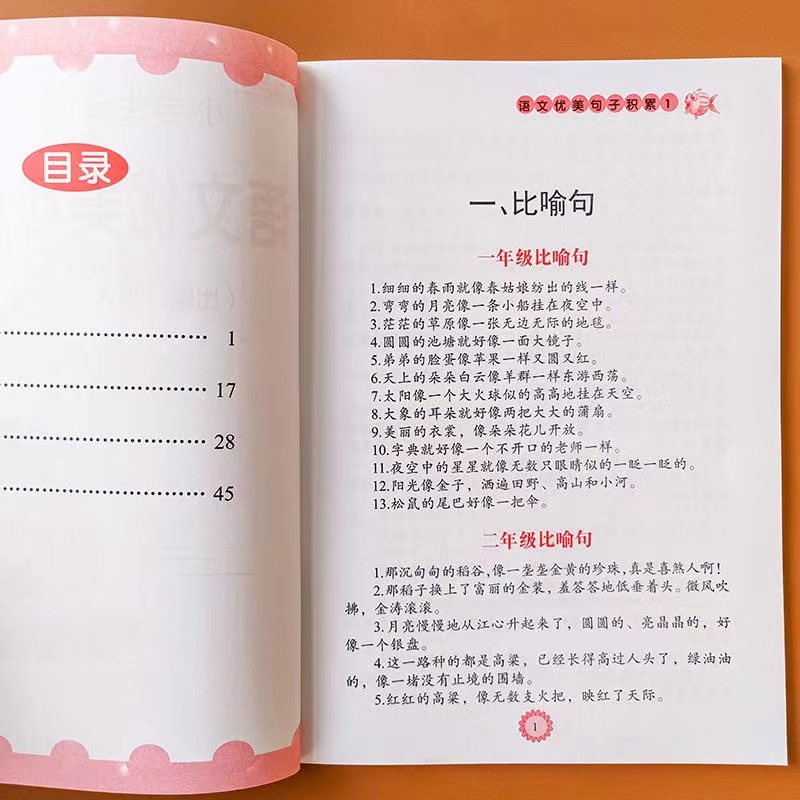 目录
1
17
28
45
语文优美句子积累1
一、比喻句
一年级比喻句
1.细细的春雨就像春姑娘纺出的线一样。
2.弯弯的月亮像一条小船挂在夜空中。
3.茫茫的草原像一张无边无际的地毯。
4.圆圆的池塘就好像一面大镜子。
5.弟弟的脸蛋像苹果一样又圆又红。
6.天上的朵朵白云像羊群一样东游西荡。
7.太阳像一个大火球似的高高地挂在天空。
8.大象的耳朵就好像两把大大的蒲扇。
9.美丽的衣裳，像朵朵花儿开放。
10.字典就好像一个不开口的老师一样。
11.夜空中的星星就像无数只眼睛似的一眨一眨的。
12.阳光像金子，洒遍田野、高山和小河。
13.松鼠的尾巴好像一把伞。
二年级比喻句
1.那沉甸甸的稻谷，像一垄垄金黄的珍珠，真是喜煞人啊！
2.那稻子换上了富丽的金装，羞答答地低垂着头。微风吹
拂，金涛滚滚。
3.月亮慢慢地从江心升起来了，圆圆的、亮晶晶的，好
像一个银盘。
4.这一路种的都是高粱，已经长得高过人头了，绿油油
的，像一堵没有止境的围墙。
5.红红的高粱，像无数支火把，映红了天际。
1